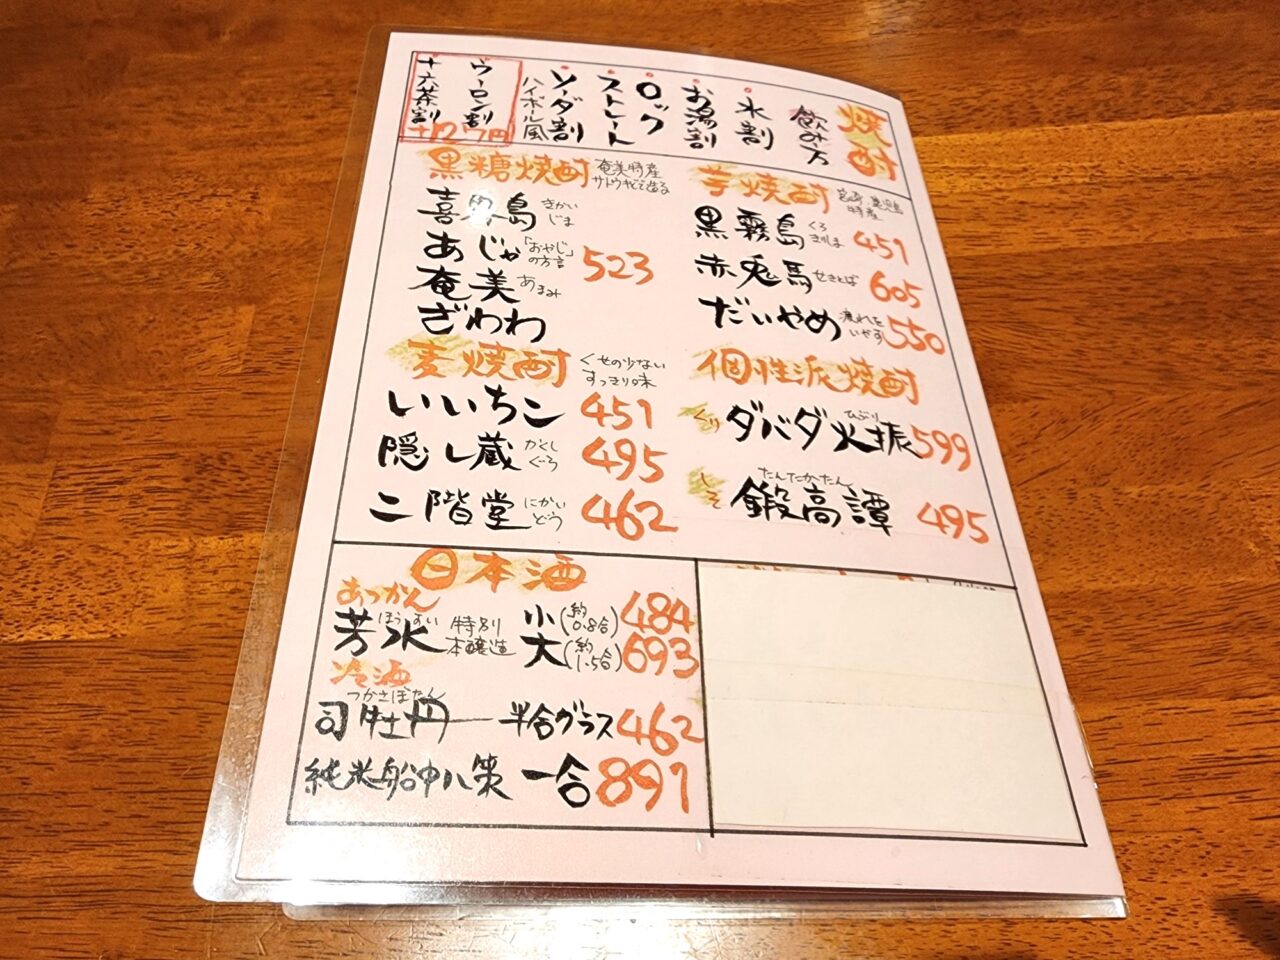 焼酎
飲み方
水割
お湯割
ロック
ストレート
ソーダ割
ハイボール風
ウーロン割
十六茶割
+127円
黒糖焼酎 奄美特産
サトウキビで造る
喜界島 きかい
じま
あじゃ 「おやじ」
の方言
523
奄美 あまみ
ざわわ
麦焼酎 くせの少ない
すっきり味
いいちこ 451
隠し蔵 かくし
ぐら 495
二階堂 にかい
どう 462
芋焼酎 宮崎・鹿児島
特産
黒霧島 くろ
きりしま 451
赤兎馬 せきとば 605
だいやめ 疲れを
いやす 550
個性派焼酎
くり ダバダ火振 ひぶり 599
しそ 鍛高譚 たんたかたん 495
日本酒
あつかん
芳水 ほうすい 特別
本醸造
小(約
0.8合) 484
大(約
1.5合) 693
冷酒
つかさぼたん
司牡丹 ー 半合グラス 462
純米船中八策 一合 891